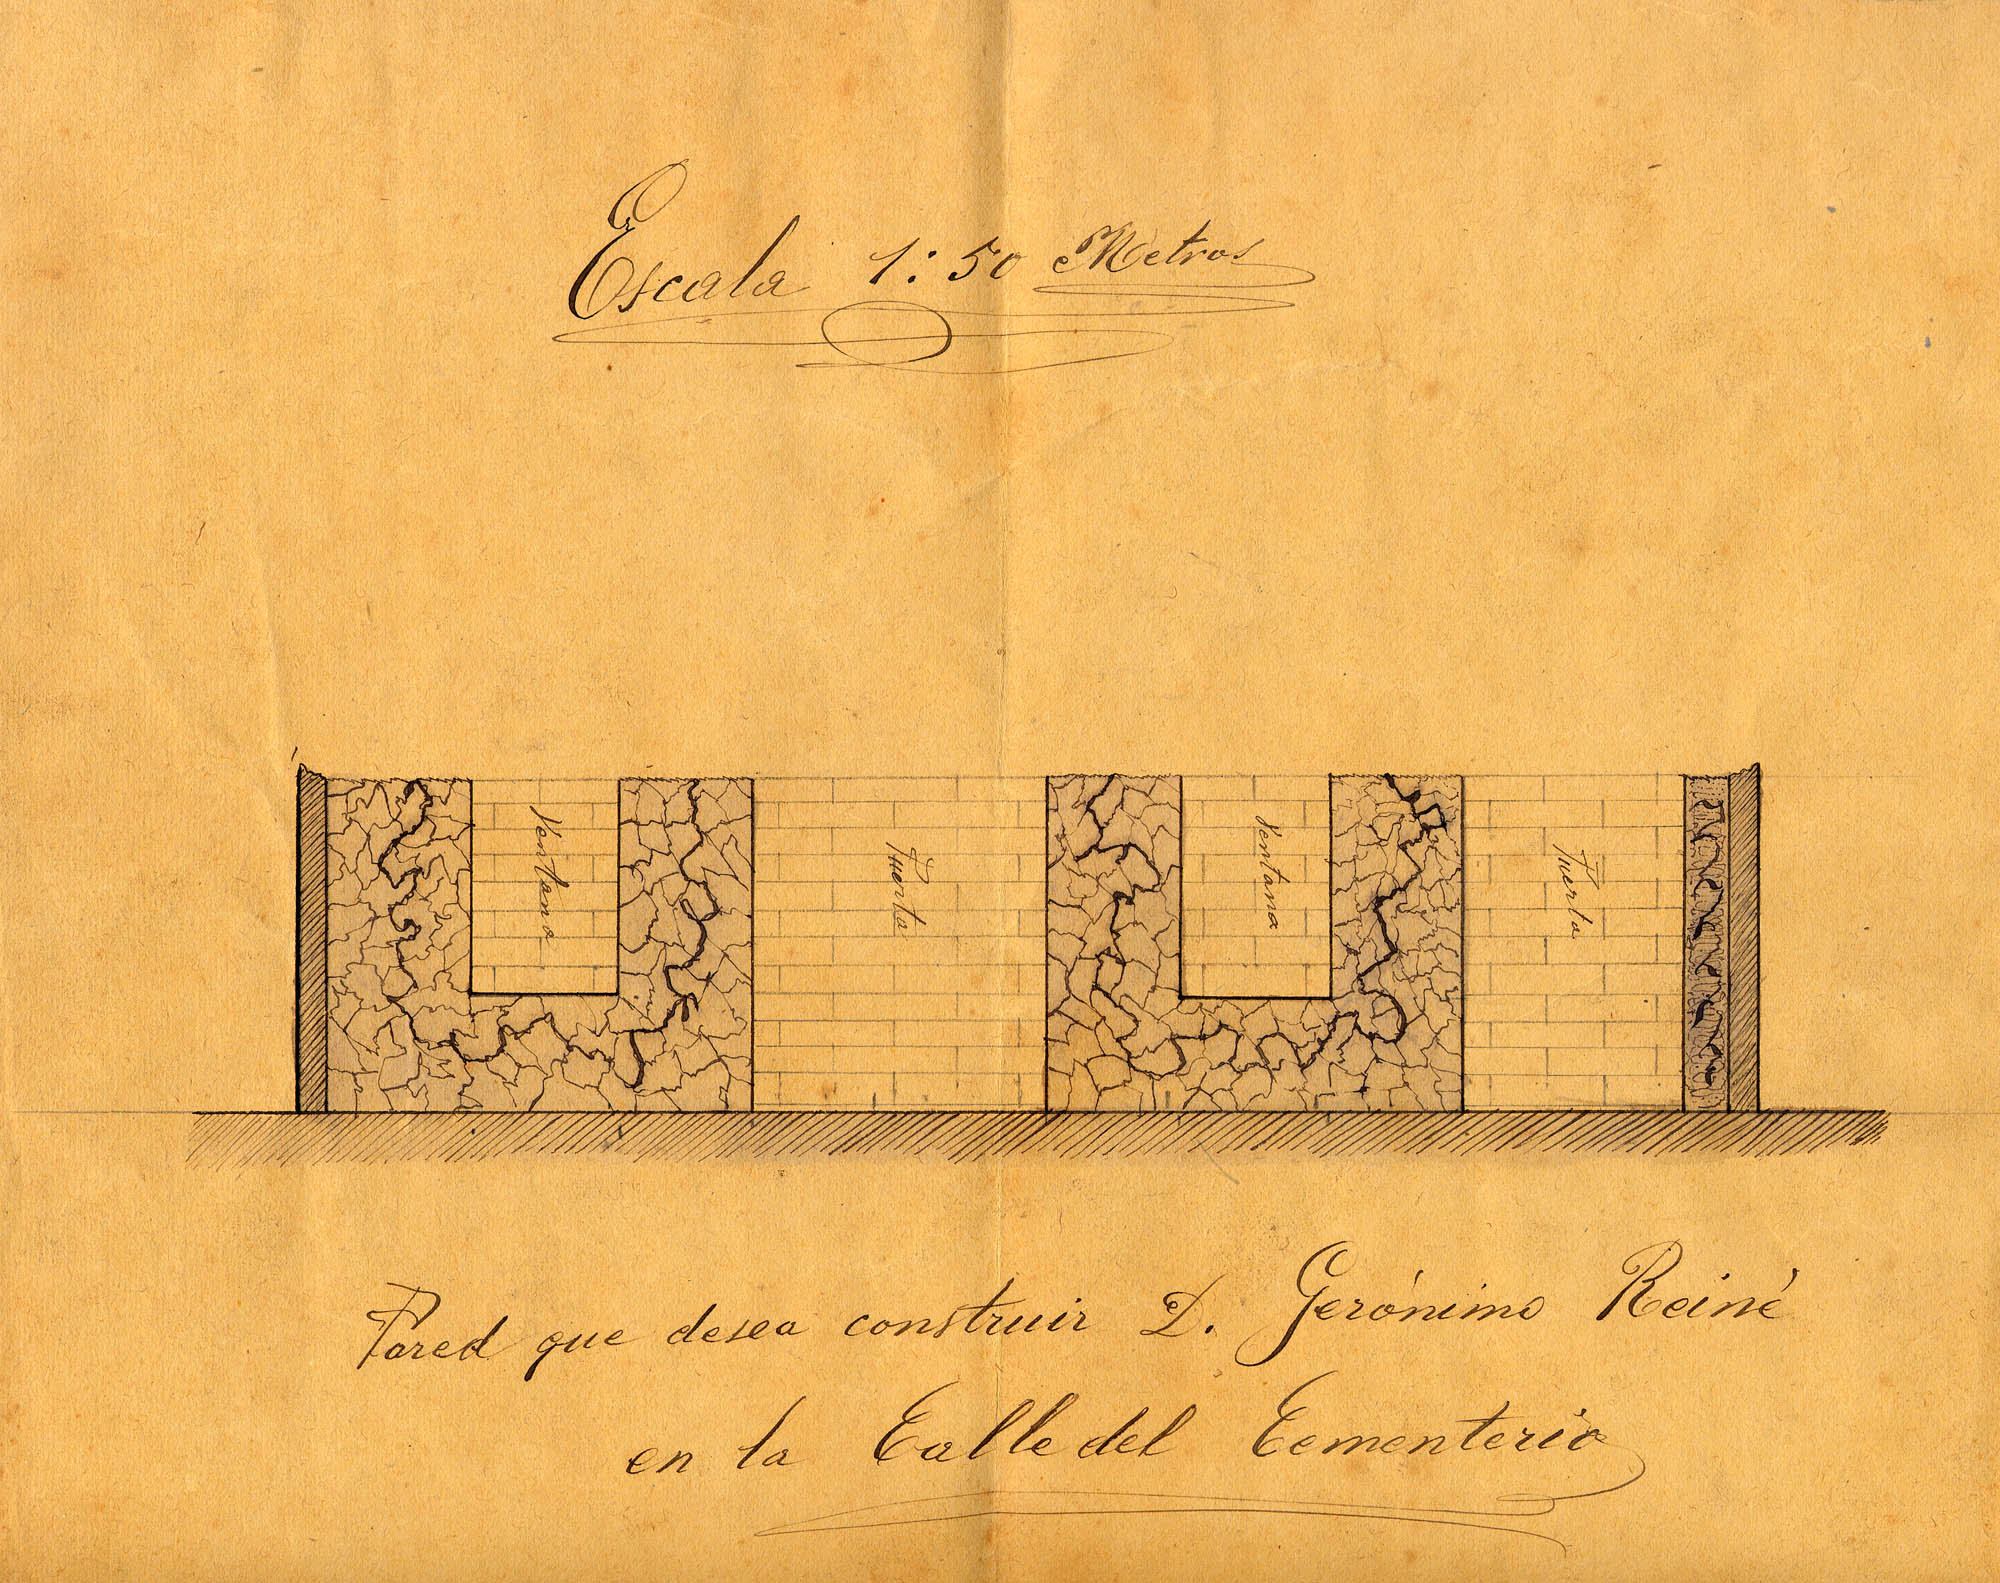 Escala 1:50 Metros
Ventana
Puerta
Ventana
Puerta
Pared que desea construir D. Gerónimo Reiné
en la Calle del Cementerio